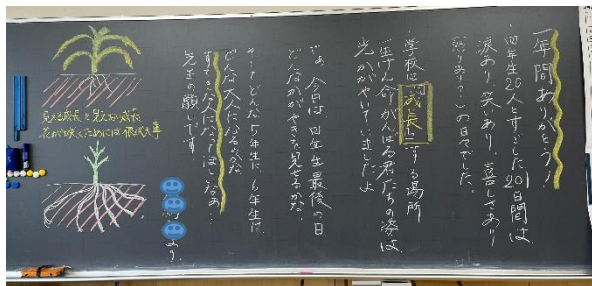 一年間ありがとう!
四年生26人とすごした201日間は、
涙あり、笑いあり、喜びあり
怒りあり?の日々でした。
学校は「成長」する場所
一生けん命がんばる君たちの姿は
光かがやいていましたよ
さぁ、今日は四年生最後の日
どんなかがやきを見せるかな。
そしてどんな5年生に 6年生に
どんな大人になるのかな
すてきな人になってほしいなぁ…
先生の願いです。
より
見える成長と見えない成長
花がさくためには根が大事